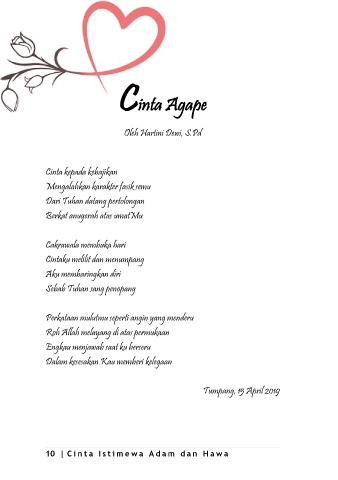 Cinta Agape
Oleh Hartini Dewi, S.Pd
Cinta kepada kebajikan
Mengalahkan karakter fasik semu
Dari Tuhan datang pertolongan
Berkat anugerah atas umatMu
Cakrawala membuka hari
Cintaku melilit dan menumpang
Aku membaringkan diri
Sebab Tuhan sang penopang
Perkataan mulutmu seperti angin yang menderu
Roh Allah melayang di atas permukaan
Engkau menjawab saat ku berseru
Dalam kesesakan Kau memberi kelegaan
Tumpang, 13 April 2019
10 | Cinta Istimewa Adam dan Hawa